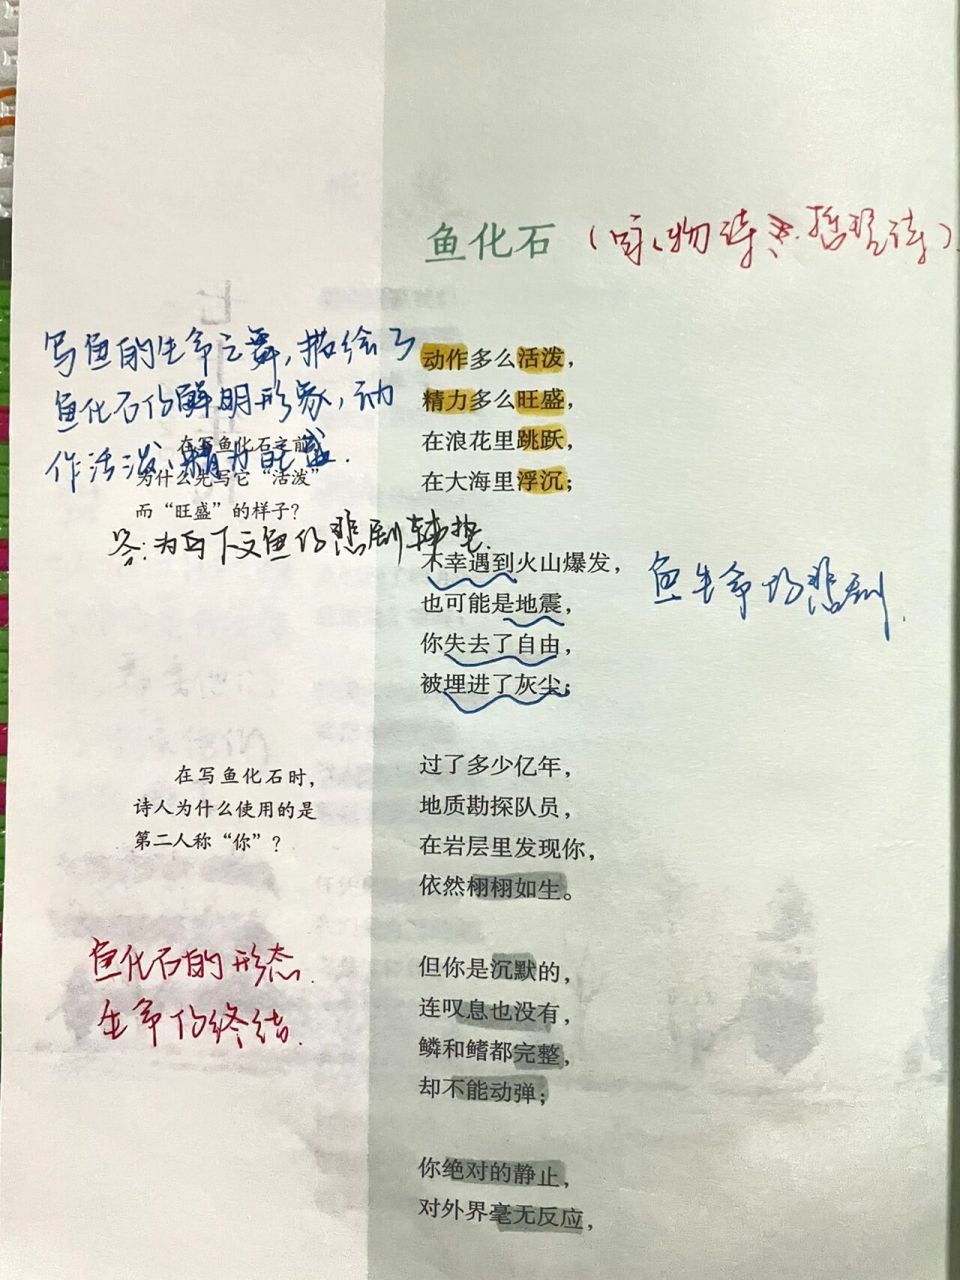 鱼化石（咏物诗 哲理诗）
写鱼的生命之舞，描绘了
鱼化石的鲜明形象，动
作活泼、精力旺盛.
在写鱼化石之前
为什么先写它“活泼”
而“旺盛”的样子？
答：为写下文鱼的悲剧铺垫.
动作多么活泼，
精力多么旺盛，
在浪花里跳跃，
在大海里浮沉；
不幸遇到火山爆发，
也可能是地震，
你失去了自由，
被埋进了灰尘；
鱼生命的悲剧.
过了多少亿年，
地质勘探队员，
在岩层里发现你，
依然栩栩如生。
在写鱼化石时，
诗人为什么使用的是
第二人称“你”？
但你是沉默的，
连叹息也没有，
鳞和鳍都完整，
却不能动弹；
鱼化石的形态.
生命的终结.
你绝对的静止，
对外界毫无反应，